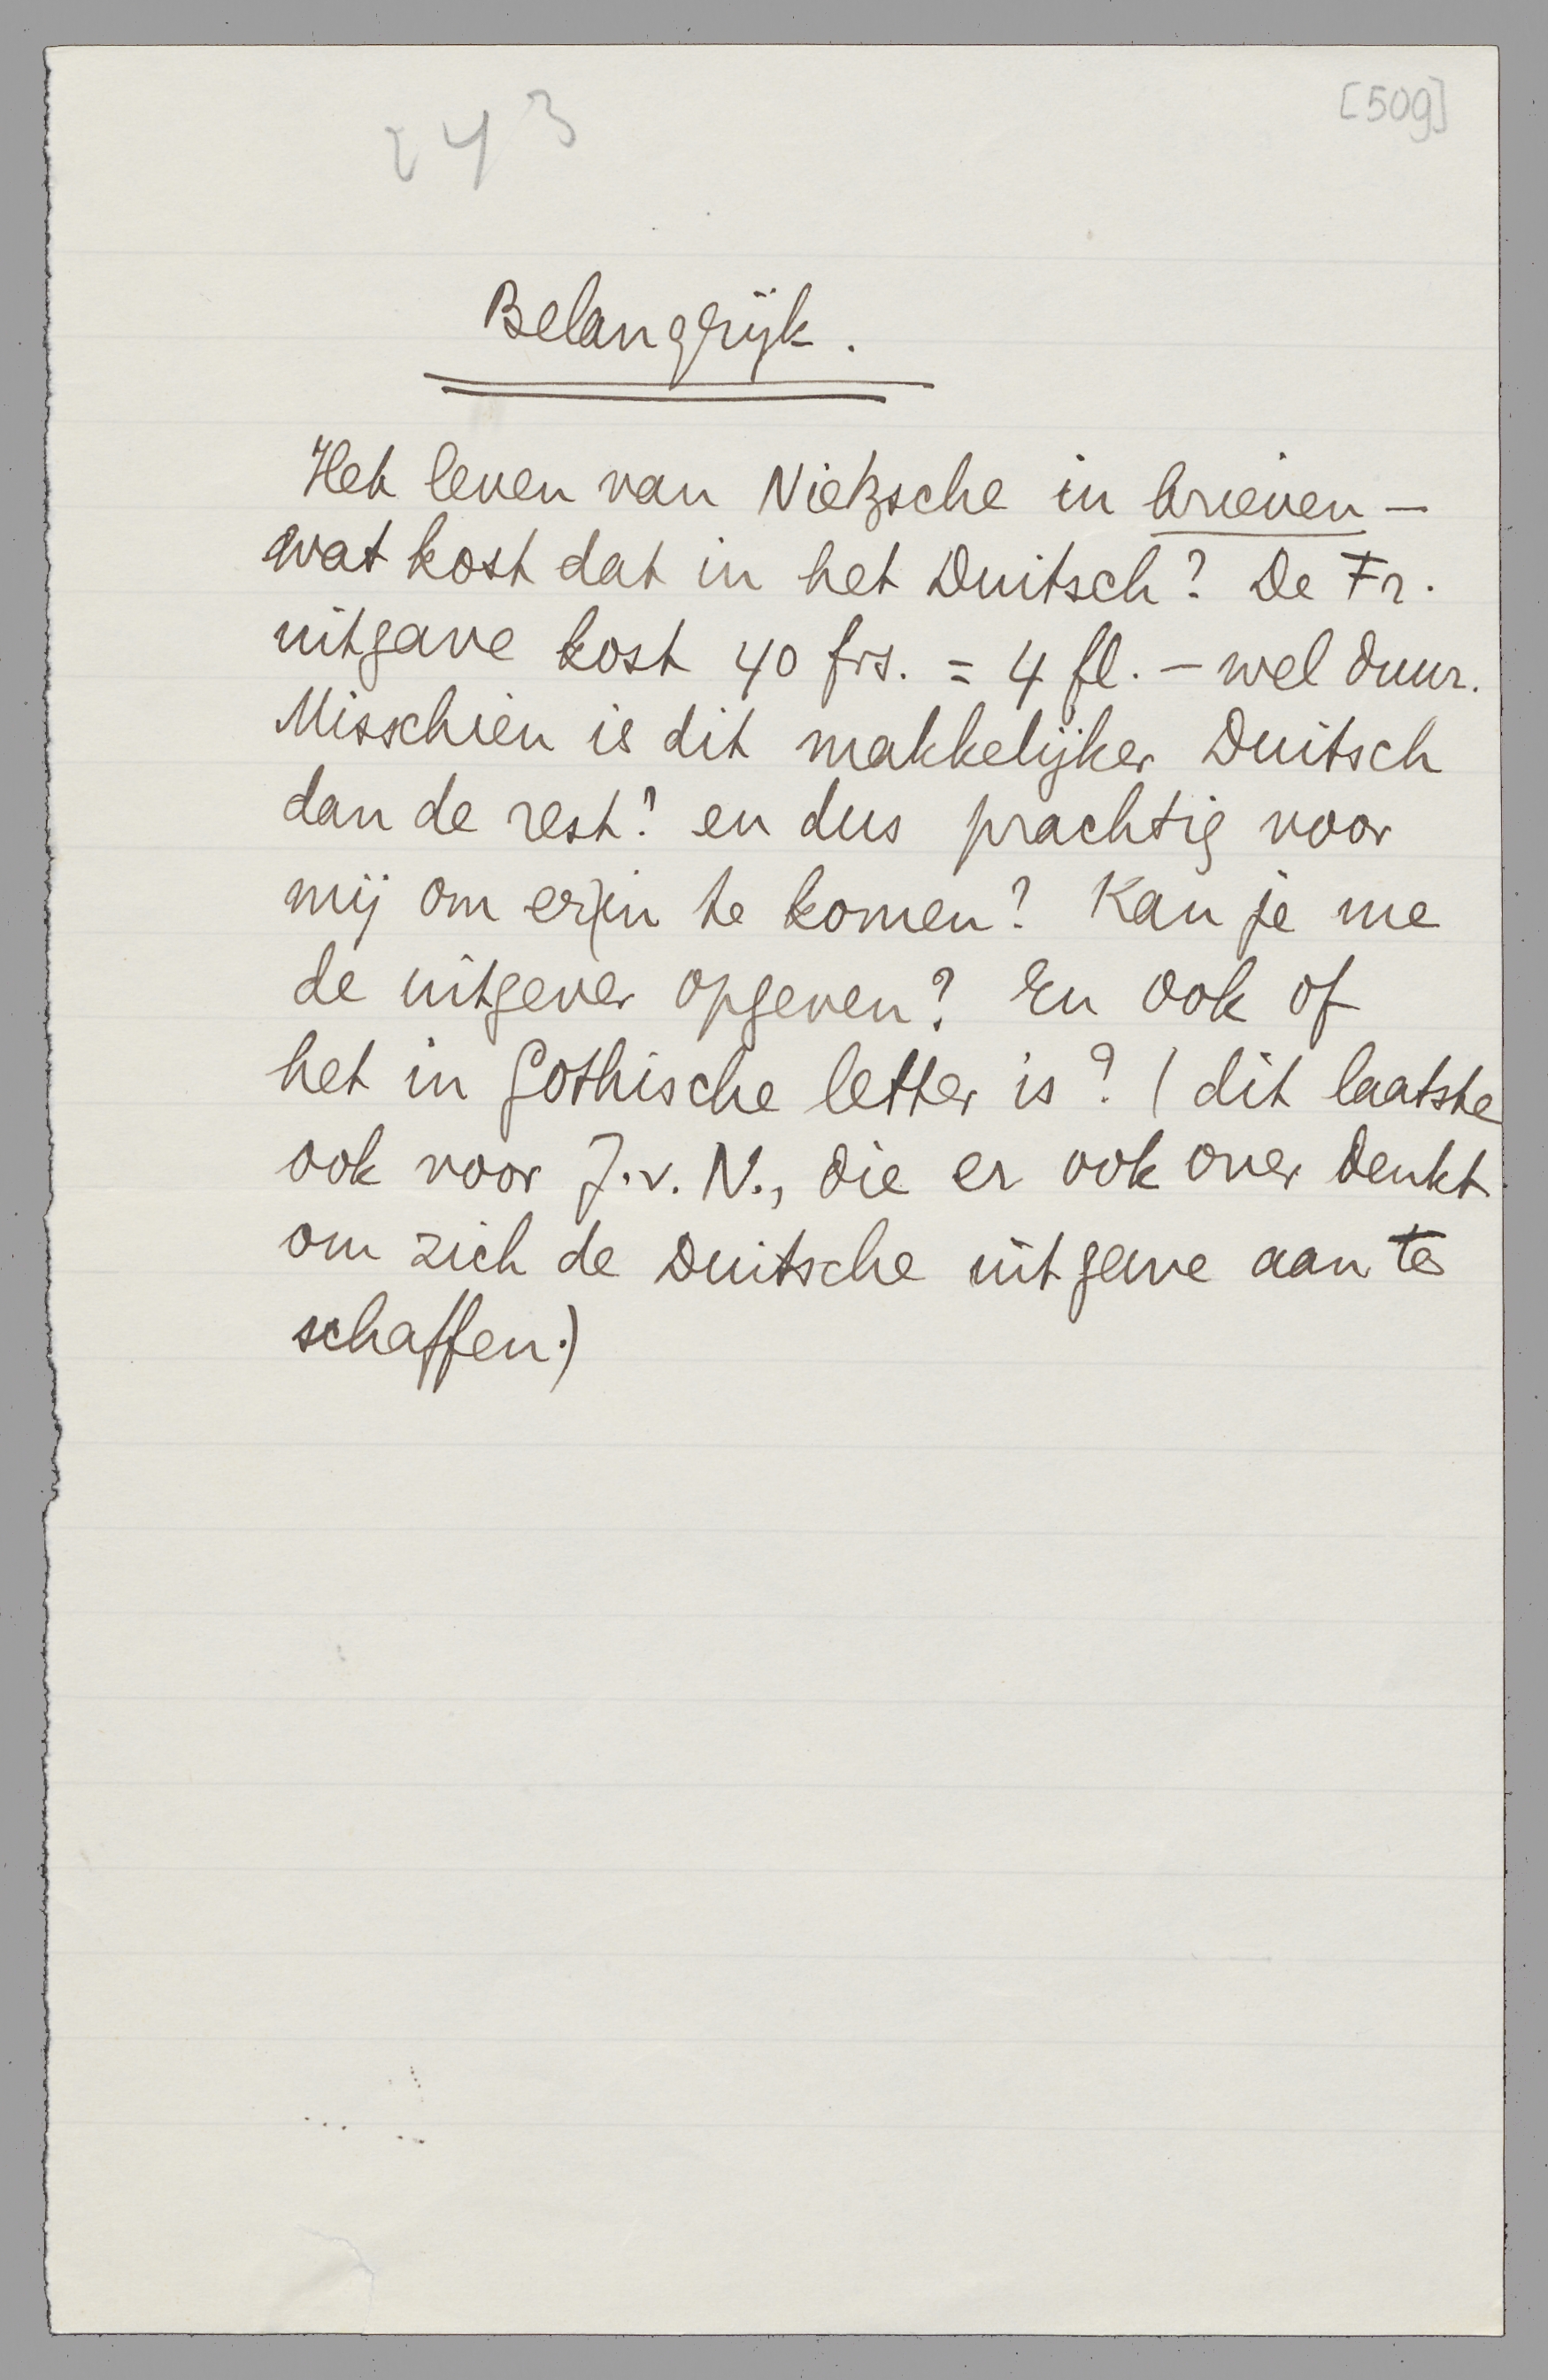 243
[509]
Belangrijk.
Het leven van Nietzsche in brieven —
wat kost dat in het Duitsch? De Fr.
uitgave kost 40 frs. = 4 fl. — wel duur.
Misschien is dit makkelijker Duitsch
dan de rest? en dus prachtig voor
mij om er in te komen? Kan je me
de uitgever opgeven? En ook of
het in Gothische letter is? (dit laatste
ook voor J.v.N., die er ook over denkt
om zich de Duitsche uitgave aan te
schaffen.)